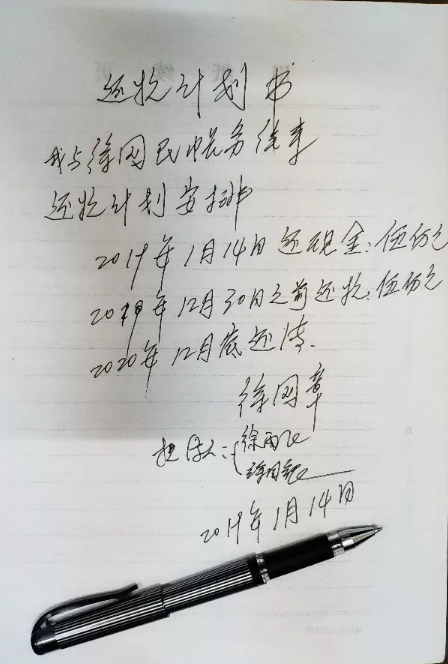 还款计划书
我与徐国民的债务结算
还款计划安排
2019年1月14日还现金:伍仟元
2019年12月30日之前还款:伍仟元
2020年12月底还清.
徐国章
担保人:徐雨飞
2019年1月14日